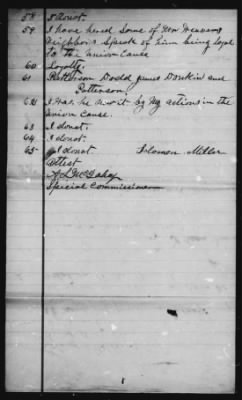 58 I do not.
59 I have hered Some of Mr Weavers
Neighbors Speak of him being loyal
to the Union Cause
60 Loyalty
61 Patterson Dodd James Donkin and
Patterson
62 I Was. he new it by My actions in the
Union Cause.
63 I do not.
64 I do not.
65 I do not Solomon Miller
Attest
Special Commissioner